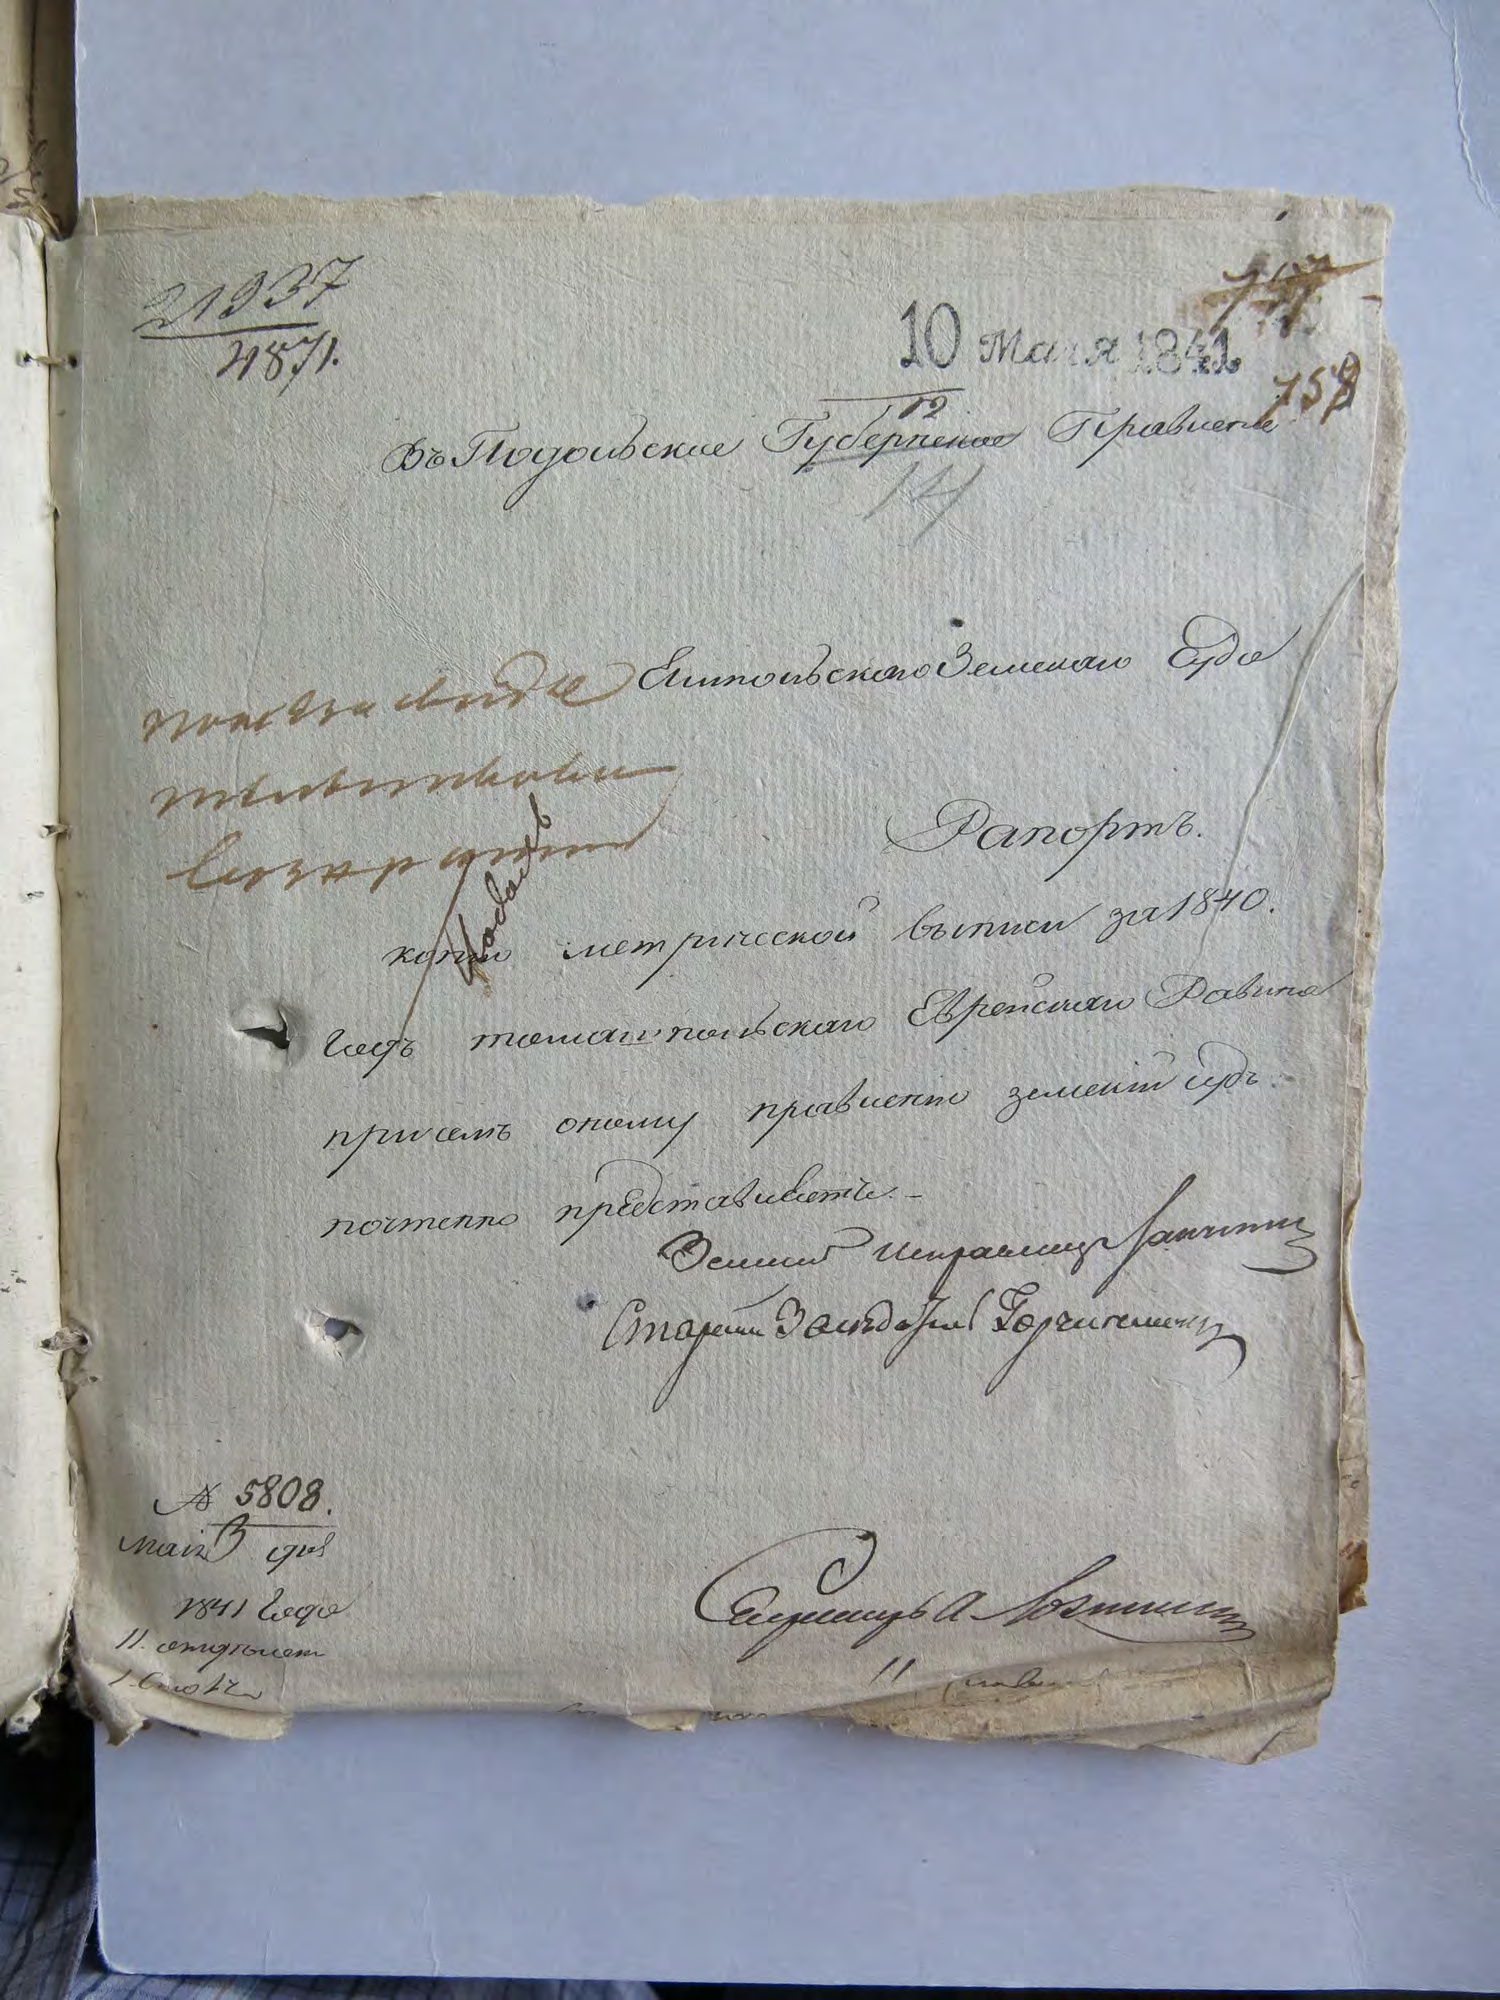 21937
4871.
10 Мая 1841.
12
757
758
Въ Подольское Губернское Правление
14
Ямпольскаго Земскаго Суда
Рапортъ.
копию метрической выписи за 1840.
годъ томашпольскаго Еврейскаго Равина
присемъ оному правлению земский судъ
почтенно представляетъ.-
Земский Исправникъ
Старший Заседатель
№ 5808.
маия 3 дня
1841 года
11. отделение
1. Столъ
Секретарь А.
11